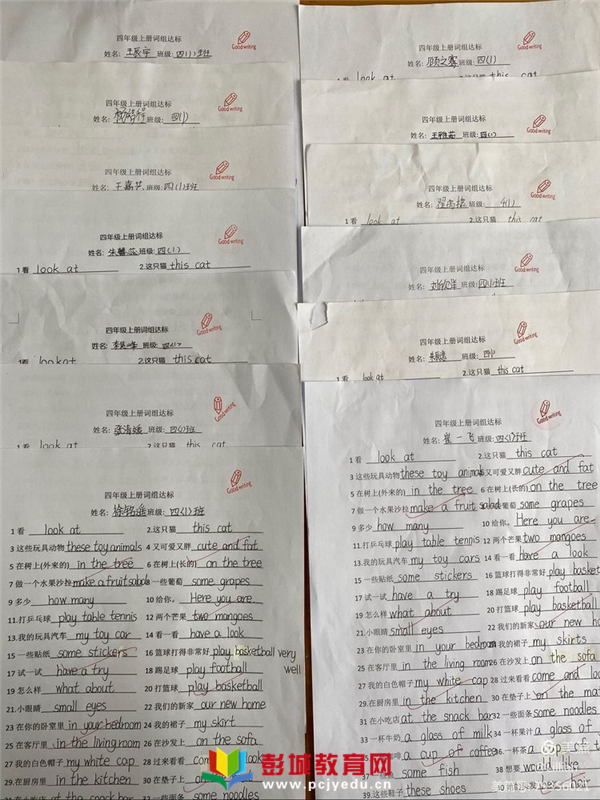 四年级上册词组达标
Good writing
姓名: 班级: 四(1)班
四年级上册词组达标
Good writing
姓名: 班级: 四(1)
四年级上册词组达标
Good writing
姓名: 王嘉 班级: 四(1)班
四年级上册词组达标
Good writing
姓名: 朱 班级: 四(1)
1看 look at 2.这只猫 this cat
四年级上册词组达标
Good writing
姓名: 李 班级: 四(1)
1看 look at 2.这只猫 this cat
四年级上册词组达标
Good writing
姓名: 班级: 四(1)班
1看 look at 2.这只猫 this cat
四年级上册词组达标
Good writing
姓名: 徐铭遥 班级: 四(1)班
1看 look at 2.这只猫 this cat
3这些玩具动物 these toy animals 4又可爱又胖 cute and fat
5在树上(外来的) in the tree 6在树上(长的) on the tree
7做一个水果沙拉 make a fruit salad 一些葡萄 some grapes
9多少 how many 10给你。 Here you are.
11.打乒乓球 play table tennis 12两个芒果 two mangoes
13.我的玩具汽车 my toy car 14看一看 have a look
15一些贴纸 some stickers 16篮球打得非常好 play basketball very well
17试一试 have a try 18踢足球 play football
19.怎么样 what about 20打篮球 play basketball
21.小眼睛 small eyes 22我们的新家 our new home
23在你的卧室里 in your bedroom 24我的裙子 my skirt
25在客厅里 in the living room 26在沙发上 on the sofa
27我的白色帽子 my white cap 28过来看看 come look
29.在厨房里 in the kitchen 30在垫子上 on
at the snack bar 一些面条 some noodles
四年级上册词组达标
Good writing
姓名: 顾之 班级: 四(1)
1看 look at 2.这只猫 this cat
四年级上册词组达标
Good writing
姓名: 王雅茹 班级: 四(1)
四年级上册词组达标
Good writing
姓名: 班级: 4(1)
1看 look at 2.这只猫 this cat
四年级上册词组达标
Good writing
姓名: 班级: 四(1)班
四年级上册词组达标
Good writing
姓名: 班级: 四(1)
1看 look at 2.这只猫 this cat
四年级上册词组达标
Good writing
姓名: 崔一飞 班级: 四(1)班
1看 look at 2.这只猫 this cat
3这些玩具动物 these toy animals 4又可爱又胖 cute and fat
5在树上(外来的) in the tree 6在树上(长的) on the tree
7做一个水果沙拉 make a fruit salad some grapes
9多少 how many 10给你。 Here you are.
11.打乒乓球 play table tennis 12两个芒果 two mangoes
13.我的玩具汽车 my toy cars 14看一看 have a look
15一些贴纸 some stickers 16篮球打得非常好 play basket
17试一试 have a try 18踢足球 play football
19.怎么样 what about 20打篮球 play basketball
21.小眼睛 small eyes 22我们的新家 our new ho
23.在你的卧室里 in your bedroom 我的裙子 my skirts
25在客厅里 in the living room 26在沙发上 on the sofa
27我的白色帽子 my white cap 28过来看看 come and look
29.在厨房里 in the kitchen 30在垫子上 on the ma
31在小吃店 at the snack bar 32一些面条 some noodles
33.一杯牛奶 a glass of milk 34一杯果汁 a glass of
a cup of coffee 36一杯茶 a
some fish 38.想要 would like
39.这些鞋子 these shoes
彭城教育网
www.pcjyedu.cn